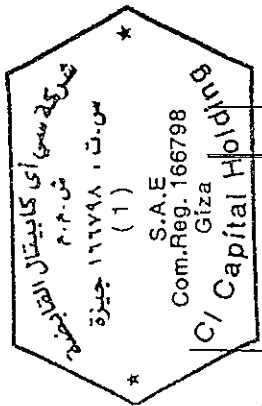 شركة سي أى كابيتال القابضة
ش.م.م
س.ت ١٦٦٧٩٨ جيزة
(1)
S.A.E
Com.Reg. 166798
Giza
CI Capital Holding